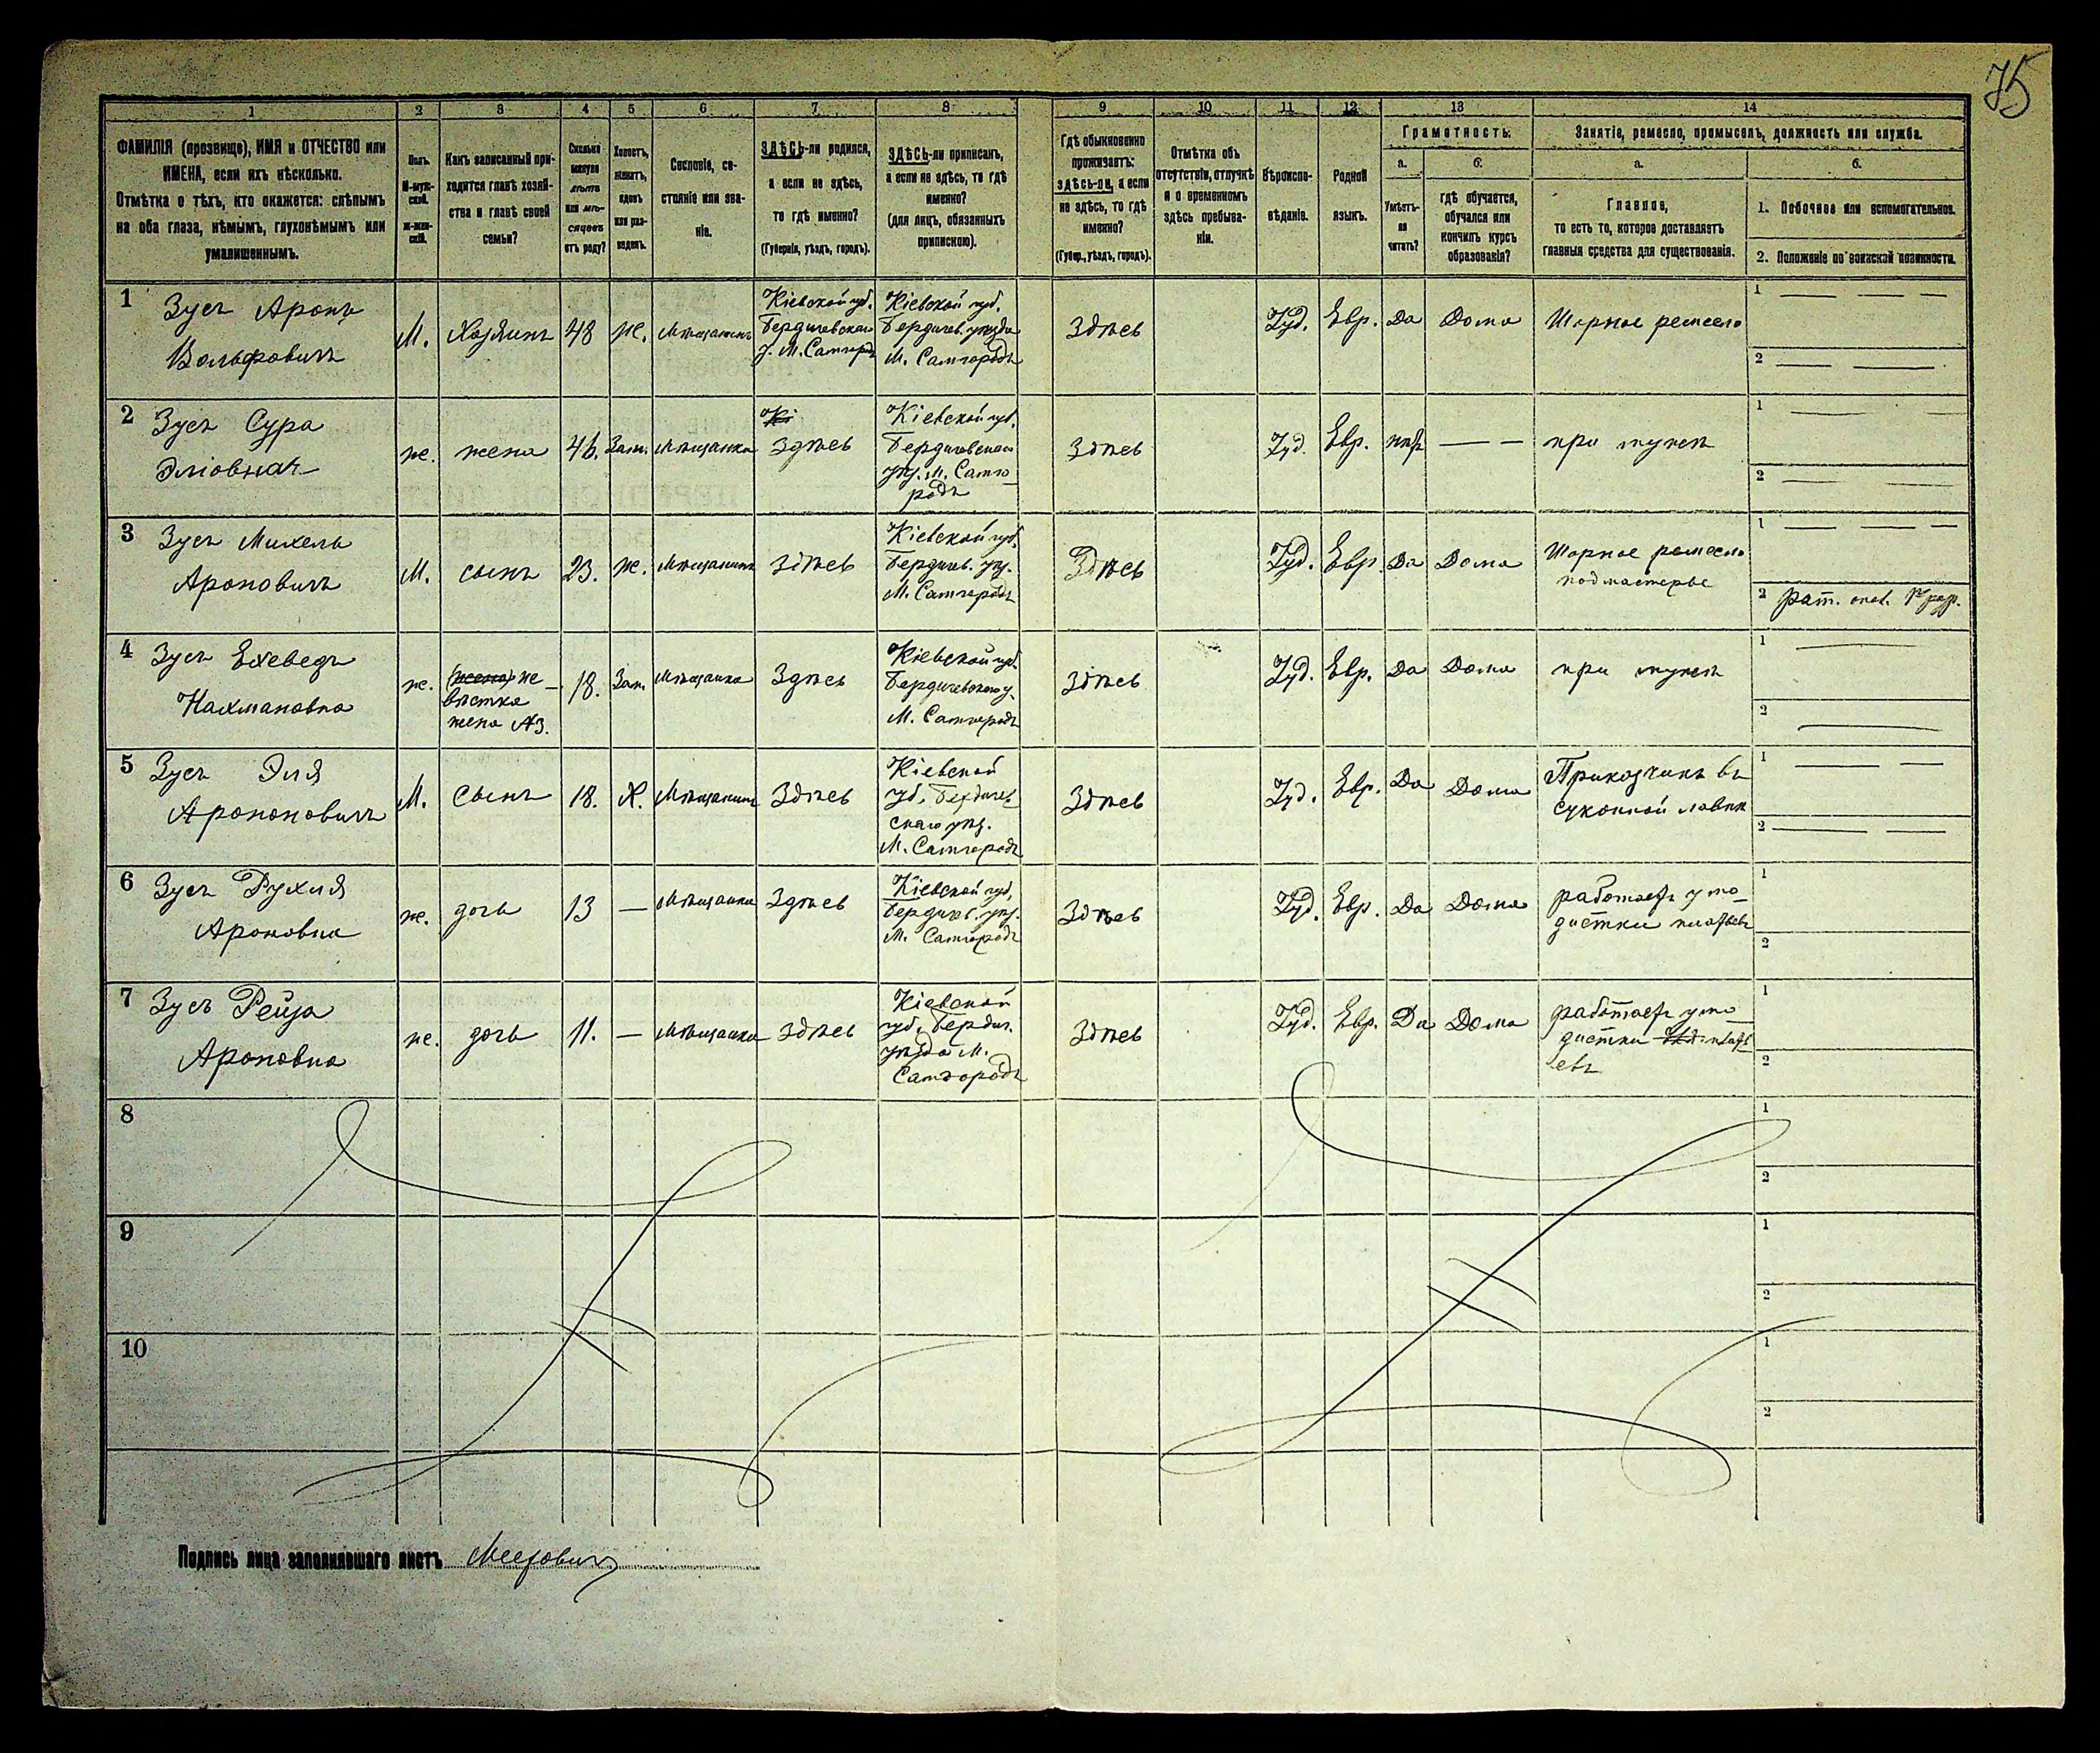 75
1 2 3 4 5 6 7 8 9 10 11 12 13 14
ФАМИЛІЯ (прозвище), ИМЯ и ОТЧЕСТВО или
ИМЕНА, если ихъ нѣсколько.
Отмѣтка о тѣхъ, кто окажется: слѣпымъ
на оба глаза, нѣмымъ, глухонѣмымъ или
умалишеннымъ.
Полъ.
М-муж-
ской.
Ж-жен-
скій.
Какъ записанный при-
ходится главѣ хозяй-
ства и главѣ своей
семьи?
Сколько
минуло
лѣтъ
или мѣ-
сяцевъ
отъ роду?
Холостъ,
женатъ,
вдовъ
или раз-
веденъ.
Сословіе, со-
стояніе или зва-
ніе.
ЗДѢСЬ-ли родился,
а если не здѣсь,
то гдѣ именно?
(Губернія, уѣздъ, городъ).
ЗДѢСЬ-ли приписанъ,
а если не здѣсь, то гдѣ
именно?
(для лицъ, обязанныхъ
припискою).
Гдѣ обыкновенно
проживаетъ:
здѣсь-ли, а если
не здѣсь, то гдѣ
именно?
(Губер., уѣздъ, городъ).
Отмѣтка объ
отсутствіи, отлучкѣ
и о временномъ
здѣсь пребыва-
ніи.
Вѣроиспо-
вѣданіе.
Родной
языкъ.
Грамотность.
а.
Умѣетъ-
ли
читать?
б.
гдѣ обучается,
обучался или
кончилъ курсъ
образованія?
Занятіе, ремесло, промыселъ, должность или служба.
а.
Главное,
то есть то, которое доставляетъ
главныя средства для существованія.
б.
1. Побочное или вспомогательное.
2. Положеніе по воинской повинности.
1
Зусъ Аронъ
Вольфовичъ
М.
Хозяинъ
48
ж.
Мѣщанинъ
Кіевской губ.
Бердичевскаго
у. М. Самгородъ
Кіевской губ.
Бердичев. уѣзда
М. Самгородъ
Здѣсь
Іуд.
Евр.
Да
Дома
Шорное ремесло
1
2
2
Зусъ Сура
Эліовна
ж.
жена
46.
Зам.
Мѣщанка
Кі
Здѣсь
Кіевской губ.
Бердичевскаго
уѣз. М. Самго
родъ
Здѣсь
Іуд.
Евр.
нѣт
при мужѣ
1
2
3
Зусъ Михель
Ароновичъ
М.
сынъ
23.
ж.
Мѣщанинъ
Здѣсь
Кіевской губ.
Бердичев. уѣз.
М. Самгородъ
Здѣсь
Іуд.
Евр.
Да
Дома
Шорное ремесло
подмастерье
1
2 рат. опол. 1го раз.
4
Зусъ Ехеведъ
Нахмановна
ж.
(жена) не
вѣстка
жена №3.
18.
Зам.
Мѣщанка
Здѣсь
Кіевской губ.
Бердичевскаго у.
М. Самгородъ
Здѣсь
Іуд.
Евр.
Да
Дома
при мужѣ
1
2
5
Зусъ Эля
Арононовичъ
М.
Сынъ
18.
Х.
Мѣщанинъ
Здѣсь
Кіевской
губ. Бердичев
скаго уѣз.
М. Самгородъ
Здѣсь
Іуд.
Евр.
Да
Дома
Приказчикъ въ
суконной лавкѣ
1
2
6
Зусъ Рухля
Ароновна
ж.
дочь
13
Мѣщанка
Здѣсь
Кіевской губ.
Бердичев. уѣз.
М. Самгородъ
Здѣсь
Іуд.
Евр.
Да
Дома
работает у мо
дистки платьевъ
1
2
7
Зусъ Рейза
Ароновна
ж.
дочь
11.
Мѣщанка
Здѣсь
Кіевской
губ. Бердич.
уѣзда М.
Самгородъ
Здѣсь
Іуд.
Евр.
Да
Дома
работает у мо
дистки плать
евъ
1
2
8
1
2
9
1
2
10
1
2
Подпись лица заполнявшаго листъ